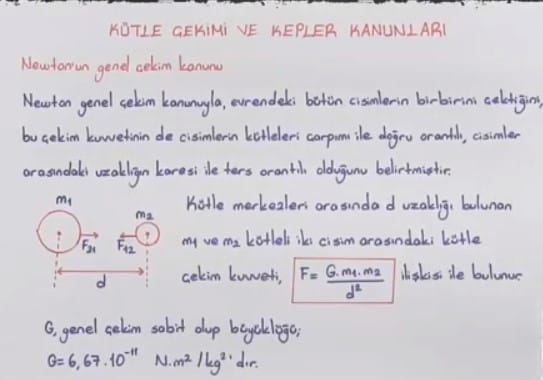 KÜTLE ÇEKİMİ VE KEPLER KANUNLARI
Newton'un genel çekim kanunu
Newton genel çekim kanunuyla, evrendeki bütün cisimlerin birbirini çektiğini,
bu çekim kuvvetinin de cisimlerin kütleleri çarpımı ile doğru orantılı, cisimler
arasındaki uzaklığın karesi ile ters orantılı olduğunu belirtmiştir.
m₁ m₂
F₂₁ F₁₂
d
Kütle merkezleri arasında d uzaklığı bulunan
m₁ ve m₂ kütleli iki cisim arasındaki kütle
çekim kuvveti, F = G.m₁.m₂ / d² ilişkisi ile bulunur
G, genel çekim sabit olup büyüklüğü;
G = 6,67.10⁻¹¹ N.m² / kg²' dır.